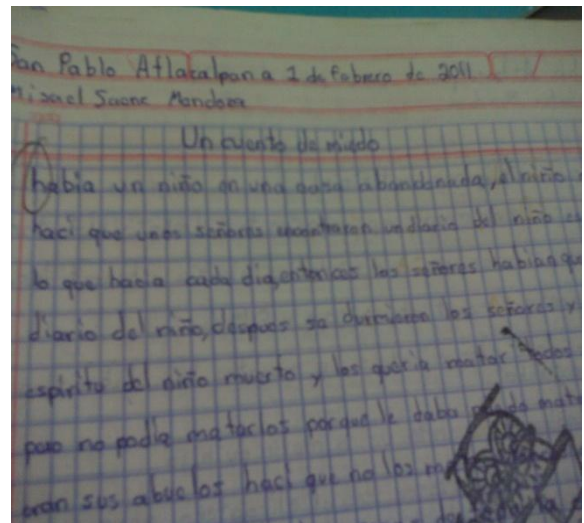 San Pablo Atlazalpan a 1 de febrero de 2011
Misael Mendoza
Un cuento de miedo
había un niño en una casa abandonada, el niño
haci que unos señores encontraron un diario del niño
lo que hacia cada dia, entonces los señores habian
diario del niño, después se durmieron los señores y
espiritu del niño muerto y los queria matar todos
pero no podia matarlos porque le daba
eran sus abuelos haci que no los